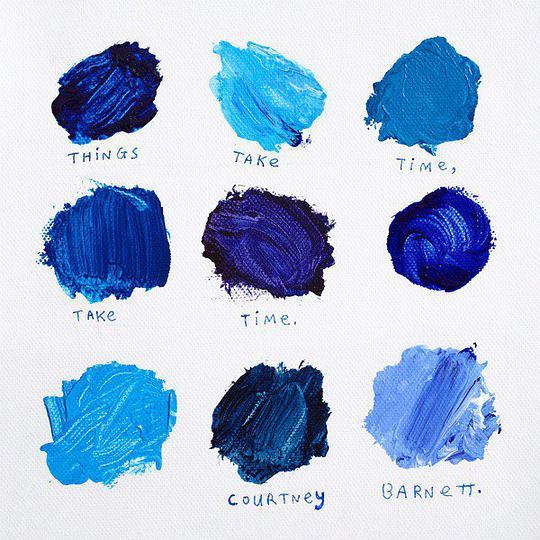 THINGS TAKE TIME,
TAKE TIME.
COURTNEY BARNETT.